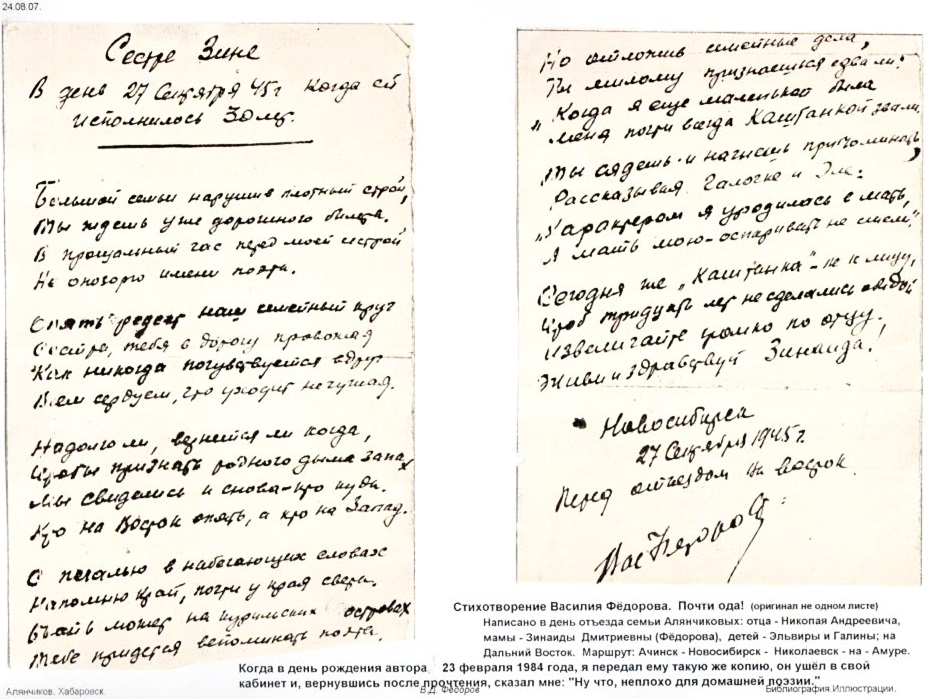 24.08.07.
Сестре Зине
В день 27 Сентября 45 г когда ей
исполнилось 30 лет.
Большой семьи нарушив плотный строй,
Ты ждешь уже дорожного билета.
В прощальный час перед моей сестрой
Не опозорю имени поэта.
Опять редеет наш семейный круг
Сестра, тебя в дорогу провожая
Как никогда почувствуется вдруг
Всем сердцем, что уходит не чужая.
Надолго ли, вернёшься ли когда,
Чтобы признать родного дыма запах
Мы свиделись и снова - кто куда.
Кто на Восток опять, а кто на Запад.
С печалью в набегающих словах
Напомню край, почти у края света.
Быть может на курильских островах
Тебе придется вспоминать поэта.
Но отложив семейные дела,
Ты милому признаешься едва ли:
"Когда я еще маленькой была
меня почти всегда Каштанкой звали
Ты сядешь и начнешь припоминать,
Рассказывая Галочке и Эле:
"Характером я уродилась в мать,
А мать мою - оспаривать не смели"
Сегодня же "Каштанка" - не к лицу,
Чтоб тридцать лет не сделались обидой
Извеличайте громко по отцу.
Живи и здравствуй Зинаида!
Новосибирск
27 Сентября 1945 г.
Перед отъездом на восток.
Вас Федоров
Стихотворение Василия Фёдорова. Почти ода! (оригинал не одном листе)
Написано в день отъезда семьи Алянчиковых: отца - Николая Андреевича,
мамы - Зинаиды Дмитриевны (Фёдорова), детей - Эльвиры и Галины; на
Дальний Восток. Маршрут: Ачинск - Новосибирск - Николаевск - на - Амуре.
Когда в день рождения автора 23 февраля 1984 года, я передал ему такую же копию, он ушёл в свой
кабинет и, вернувшись после прочтения, сказал мне: "Ну что, неплохо для домашней поэзии."
Алянчиков. Хабаровск. В.Д. Фёдоров Библиография.Иллюстрации.